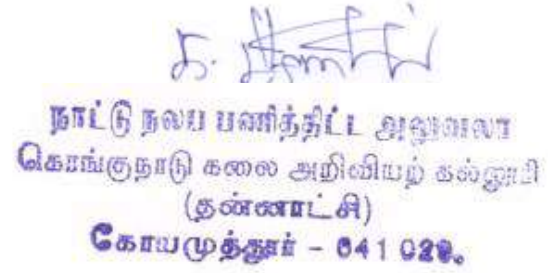 நாட்டு நலப பணித்திட்ட அலுவலா
கொங்குநாடு கலை அறிவியற் கல்லூரி
(தன்னாட்சி)
கோயமுத்தூர் - 641 029.